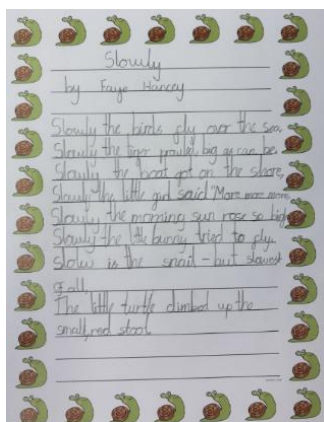 Slowly
by Faye Hancey
Slowly the birds fly over the sea,
Slowly the tiger prowled big as can be.
Slowly the boat got on the shore,
Slowly the little girl said "More more more
Slowly the morning sun rose so high
Slowly the little bunny tried to fly.
Slow is the snail - but slowest
of all
The little turtle climbed up the
small, red stool.